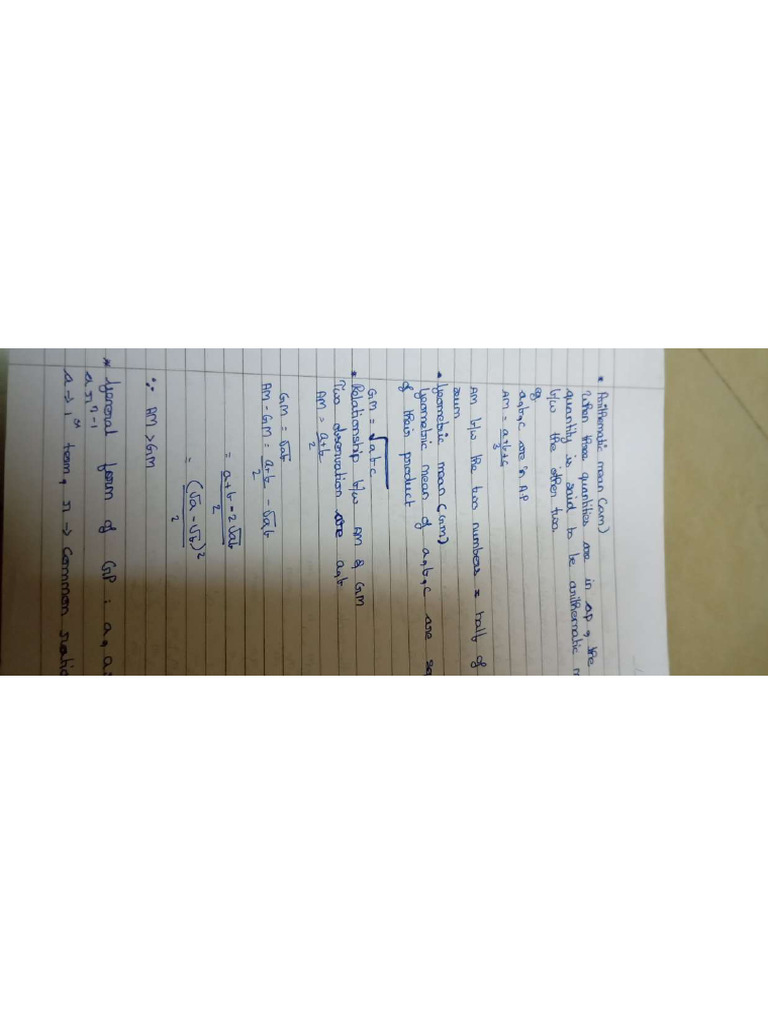 * Arithematic mean (am)
When three quantities are in ap, the
quantity is said to be arithematic m
b/w the other two.
eg
a,b,c are in AP
AM = a+b+c/3
AM b/w the two numbers = half of
sum
* Geometric mean (GM)
Geometric mean of a,b,c are sq
of their product
GM = √abc
* Relationship b/w AM & GM
Two observation are a,b
AM = a+b/2
GM = √ab
AM - GM = a+b/2 - √ab
= a+b-2√ab/2
= (√a-√b)²/2
∵ AM > GM
* General form of GP : a, a
a r^n-1
a → 1st term, r → Common ratio